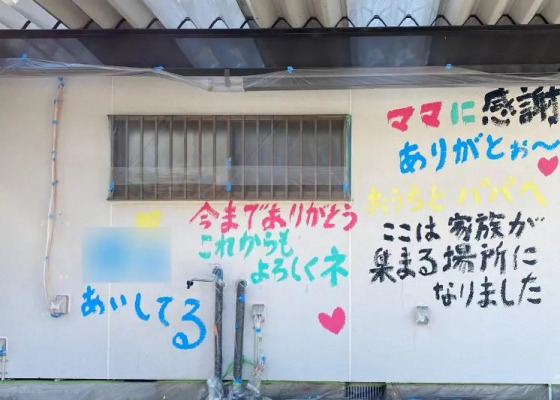 ママに感謝
ありがとぉ〜
おうちと パパへ
今までありがとう
これからも
よろしくネ
ここは家族が
集まる場所に
なりました
あいしてる